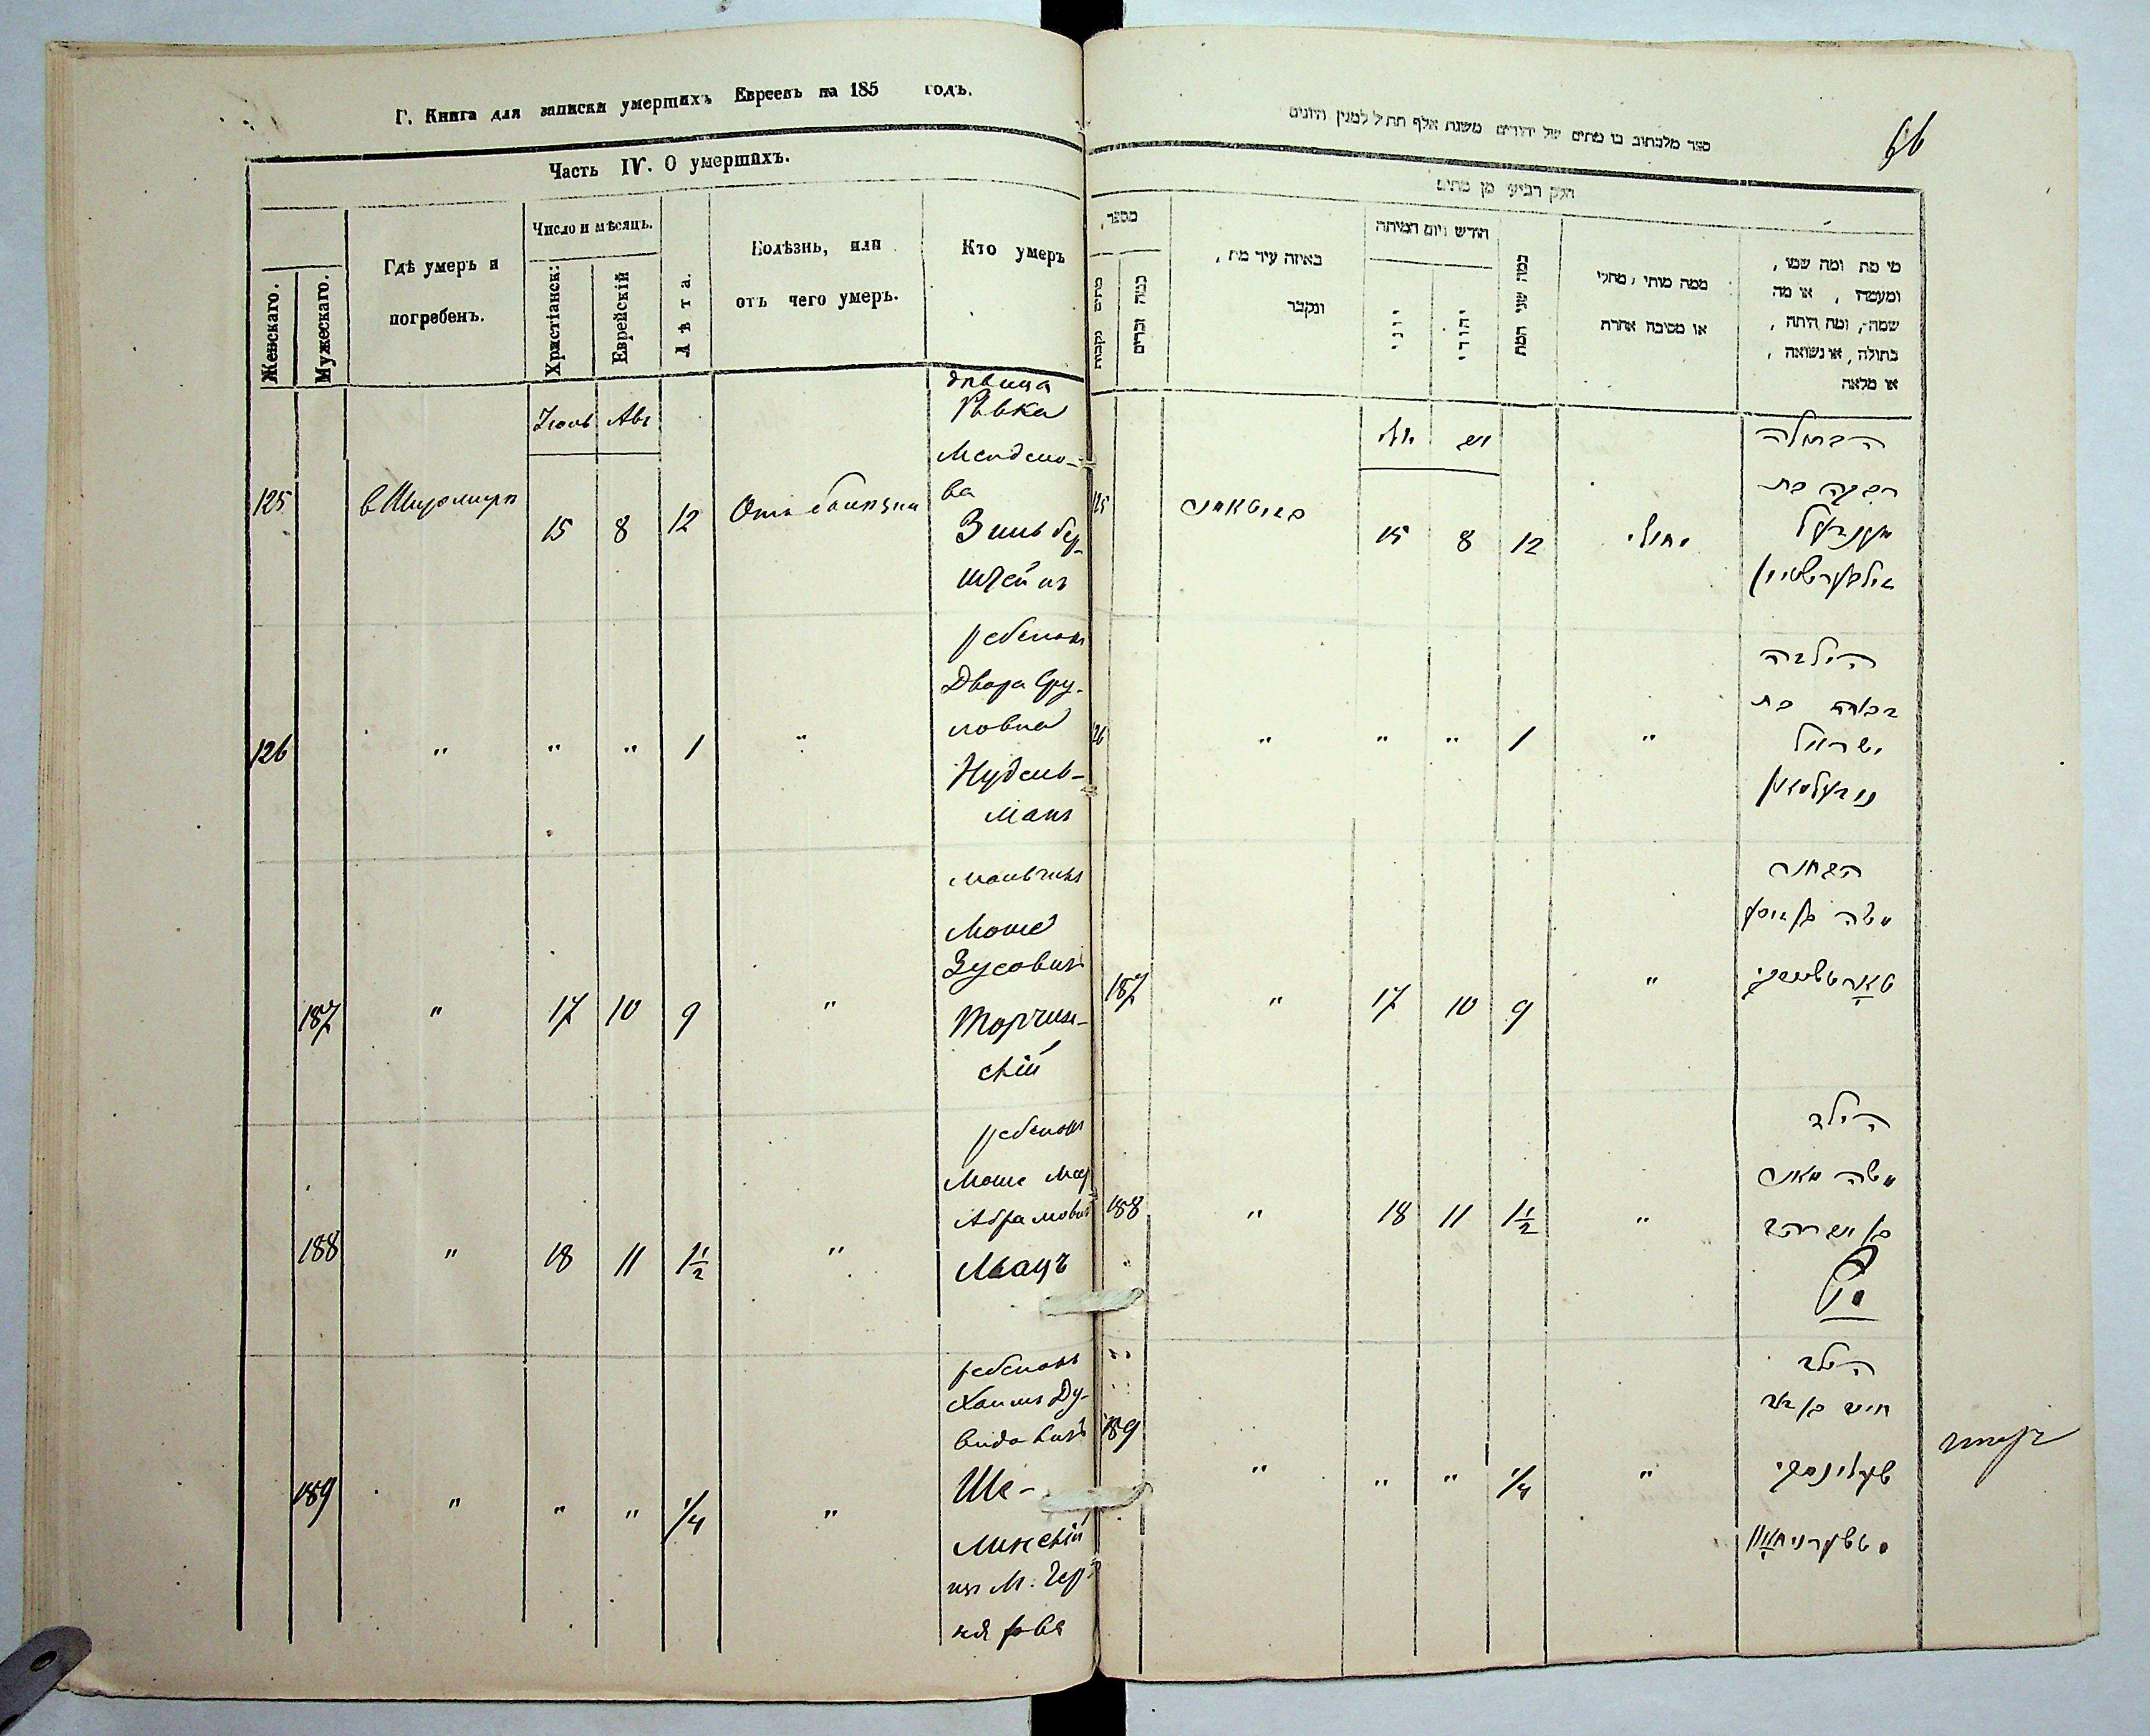 Г. Книга для записки умершихъ Евреевъ на 185 годъ.
Часть IV. О умершихъ.
Женскаго.
Мужескаго.
Гдѣ умеръ и
погребенъ.
Число и мѣсяцъ.
Христіанск:
Еврейскій
Лѣта.
Болѣзнь, или
отъ чего умеръ.
Кто умеръ
Іюль Авъ
125
15 8 12
дѣвица
Ривка
Менделе-
ва
Зильбер
штейнъ
126
" " " 1 "
ребенокъ
Двора Сру-
ловна
Нудель-
манъ
187
" 17 10 9 "
мальчикъ
Моше
Зусовичъ
Торчин-
скій
188
" 18 11 1½ "
ребенокъ
Моше
Абрамович
189
" " " ¼ "
ребенокъ
Хаимъ Ду-
видовичъ
Ше-
линскій
изъ М. Чер
66
ספר מלכתוב בו מתים של יהודים משנת אלף תת״ל למנין היונים
חלק רביעי מן מתים
מספר
מתים נקבות
כמה זכרים
באיזה עיר מת,
ונקבר
חודש ויום המיתה
יוני
יהודי
כמה שני המת
ממה מותי, מחלי
או מסיבה אחרת
מי מת ומה שמו,
ומעמדו, או מה
שמה, ומה היתה,
בתולה, או נשואה,
או מלאה
125
15 8 12
הבתולה
רבקה בת
מענדיל
זילבערשטיין
126
" " " 1 "
הילדה
דבורה בת
ישראל
נודעלמאן
187
" 17 10 9 "
הבחור
משה בן זוסי
188
" 18 11 1½ "
הילד
משה מאיר
189
" " " ¼ "
הילד
חיים בן דוד
שעלינסקי